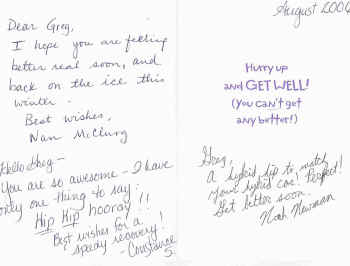 Dear Greg,
I hope you are feeling
better real soon, and
back on the ice this
winter.
Best wishes,
Nan McClurg
Hello Greg—
You are so awesome – I have
only one thing to say:
Hip Hip hooray!!
Best wishes for a
speedy recovery!
- Constance
S.
August 2006
Hurry up
and GET WELL!
(You can't get
any better!)
Greg,
A hybrid hip to match
your hybrid car! Perfect!
Get better soon.
Noah Newman